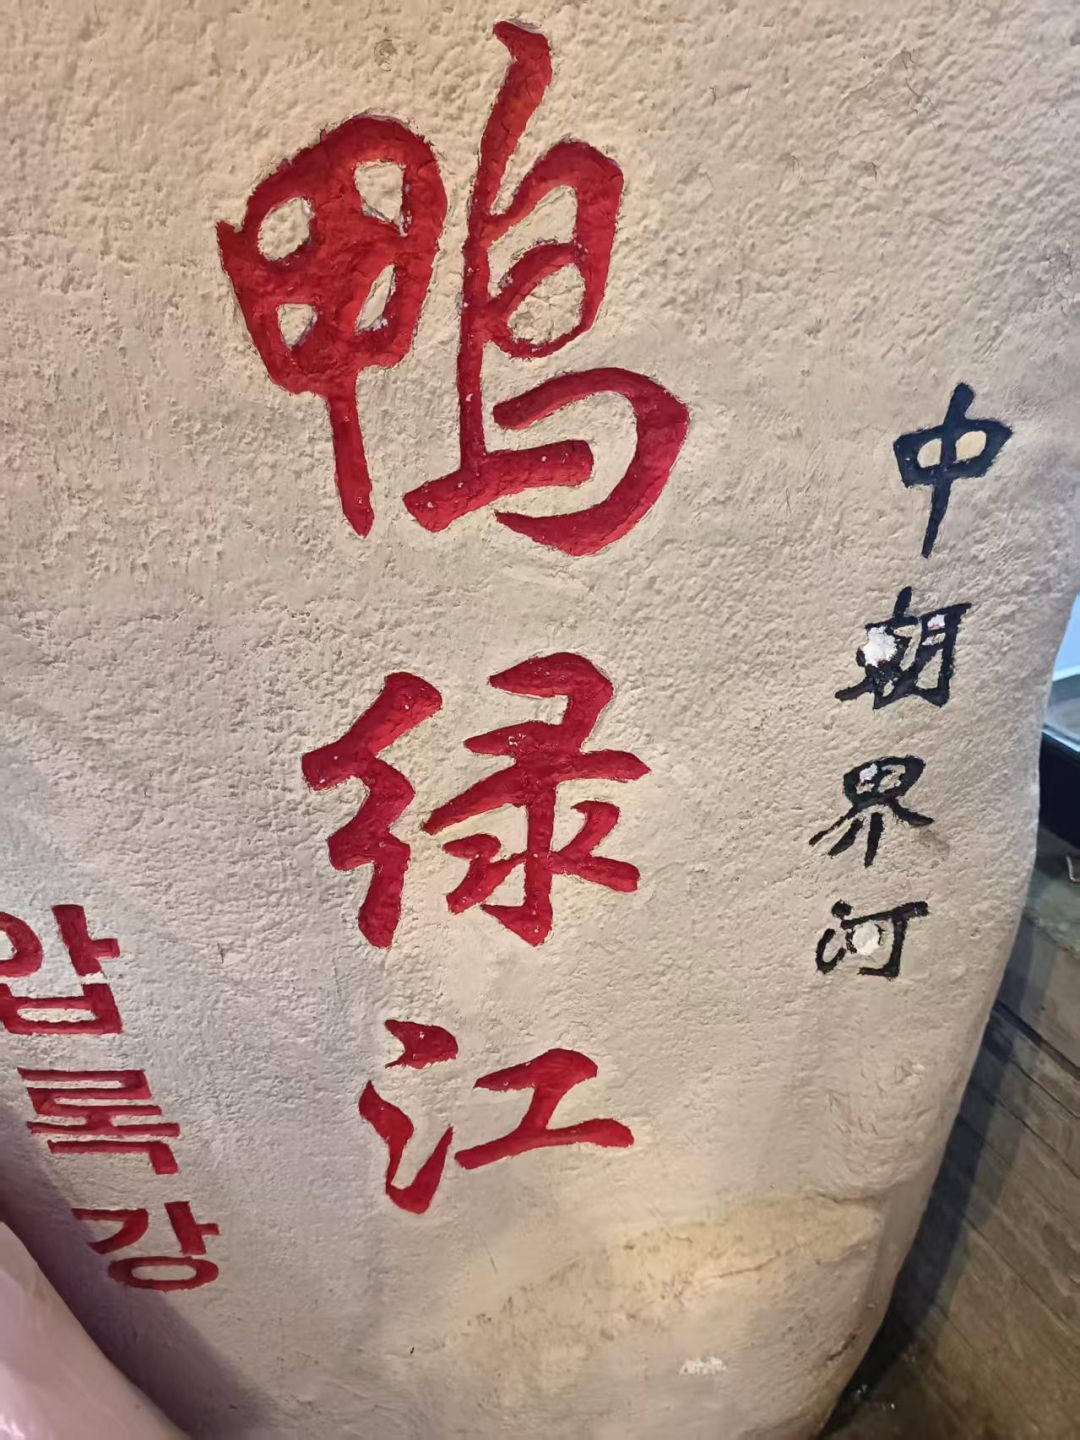 中朝界河
鸭绿江
압록강